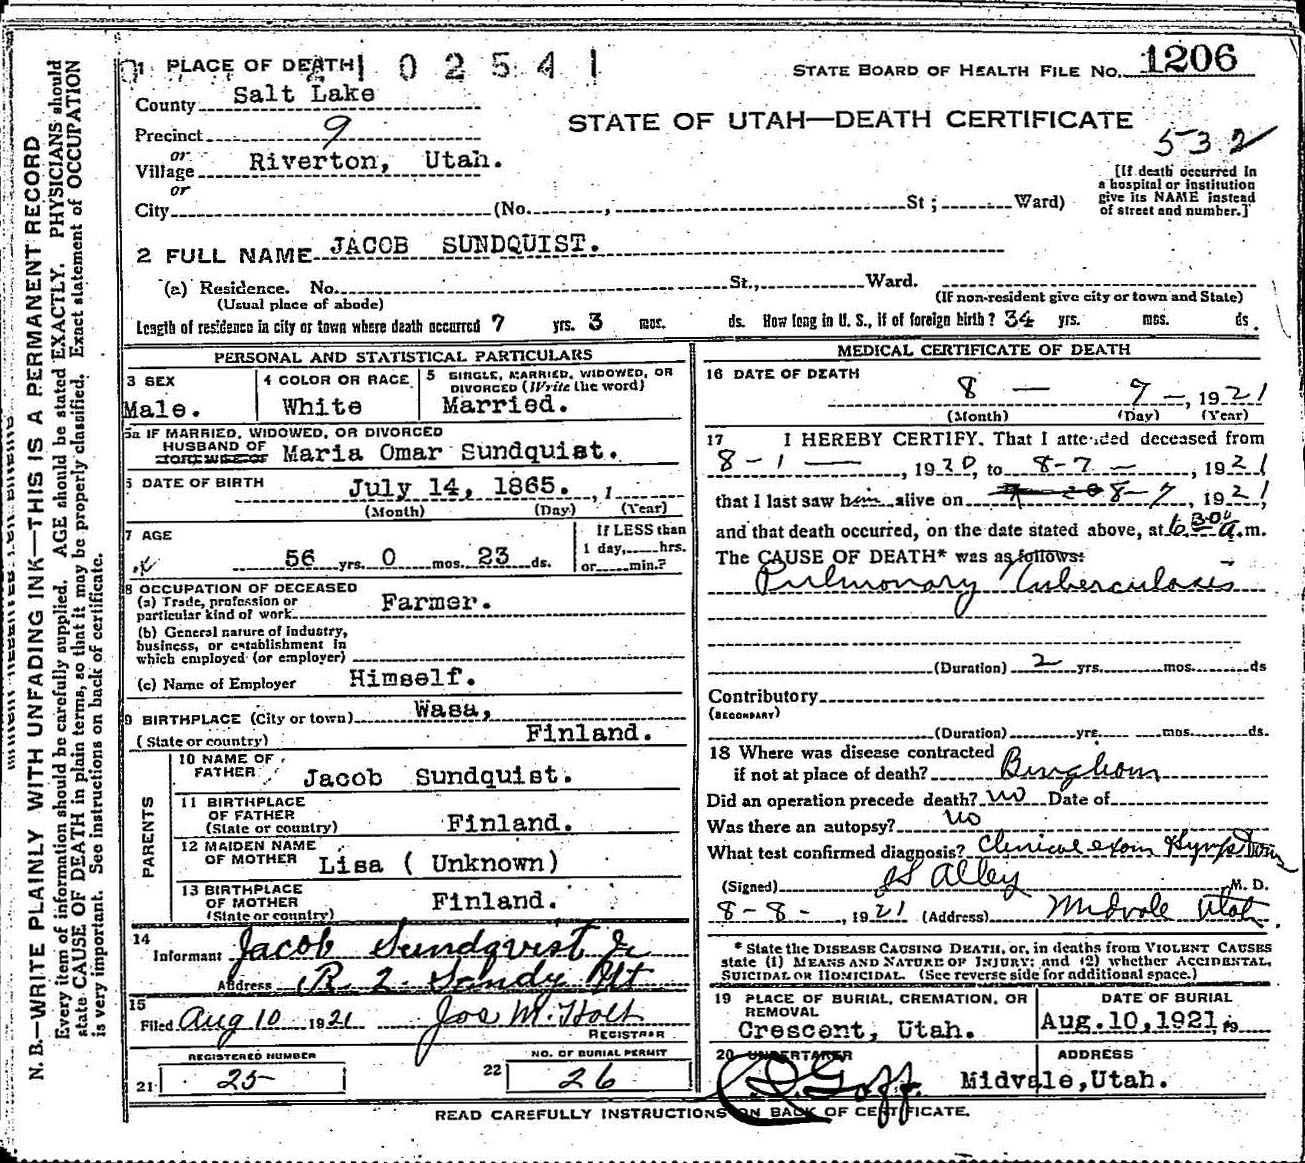 1 PLACE OF DEATH
2102541
STATE BOARD OF HEALTH FILE NO. 1206
County Salt Lake
STATE OF UTAH—DEATH CERTIFICATE
Precinct 9
532
or
Village Riverton, Utah.
or
City (No. , St ; Ward)
[If death occurred in
a hospital or institution
give its NAME instead
of street and number.]
2 FULL NAME JACOB SUNDQUIST.
(a) Residence. No. St., Ward.
(Usual place of abode) (If non-resident give city or town and State)
Length of residence in city or town where death occurred 7 yrs. 3 mos. ds. How long in U. S., if of foreign birth? 34 yrs. mos. ds.
PERSONAL AND STATISTICAL PARTICULARS
3 SEX
Male.
4 COLOR OR RACE
White
5 SINGLE, MARRIED, WIDOWED, OR
DIVORCED (Write the word)
Married.
5a IF MARRIED, WIDOWED, OR DIVORCED
HUSBAND OF
(OR) WIFE OF
Maria Omar Sundquist.
6 DATE OF BIRTH
July 14, 1865. , 1
(Month) (Day) (Year)
7 AGE
56 yrs. 0 mos. 23 ds.
If LESS than
1 day, hrs.
or min.?
8 OCCUPATION OF DECEASED
(a) Trade, profession or
particular kind of work Farmer.
(b) General nature of industry,
business, or establishment in
which employed (or employer)
(c) Name of Employer Himself.
9 BIRTHPLACE (City or town) Wasa,
(State or country) Finland.
PARENTS
10 NAME OF
FATHER Jacob Sundquist.
11 BIRTHPLACE
OF FATHER
(State or country) Finland.
12 MAIDEN NAME
OF MOTHER Lisa ( Unknown)
13 BIRTHPLACE
OF MOTHER
(State or country) Finland.
14
Informant Jacob Sundqvist Jr
Address R 2 Sandy Ut
15
Filed Aug 10 1921 Joe M. Holt
REGISTRAR
REGISTERED NUMBER
21 25
NO. OF BURIAL PERMIT
22 26
MEDICAL CERTIFICATE OF DEATH
16 DATE OF DEATH
8 — 7 — , 1921
(Month) (Day) (Year)
17 I HEREBY CERTIFY, That I attended deceased from
8-1 — , 1920, to 8-7 — , 1921
that I last saw him alive on 8-7 , 1921,
and that death occurred, on the date stated above, at 6 30 a.m.
The CAUSE OF DEATH* was as follows:
Pulmonary Tuberculosis
(Duration) 2 yrs. mos. ds
Contributory
(SECONDARY)
(Duration) yrs. mos. ds.
18 Where was disease contracted
if not at place of death? Bingham
Did an operation precede death? no Date of
Was there an autopsy? no
What test confirmed diagnosis? Clinical exam Symptoms
(Signed) JS Alley M. D.
8-8- , 1921 (Address) Midvale Utah
* State the DISEASE CAUSING DEATH, or, in deaths from VIOLENT CAUSES
state (1) MEANS AND NATURE OF INJURY; and (2) whether ACCIDENTAL,
SUICIDAL OR HOMICIDAL. (See reverse side for additional space.)
19 PLACE OF BURIAL, CREMATION, OR
REMOVAL
Crescent, Utah.
DATE OF BURIAL
Aug.10,1921, 19
20 UNDERTAKER
Goff.
ADDRESS
Midvale,Utah.
READ CAREFULLY INSTRUCTIONS ON BACK OF CERTIFICATE.
N. B.—WRITE PLAINLY WITH UNFADING INK—THIS IS A PERMANENT RECORD
Every item of information should be carefully supplied. AGE should be stated EXACTLY. PHYSICIANS should
state CAUSE OF DEATH in plain terms, so that it may be properly classified. Exact statement of OCCUPATION
is very important. See instructions on back of certificate.